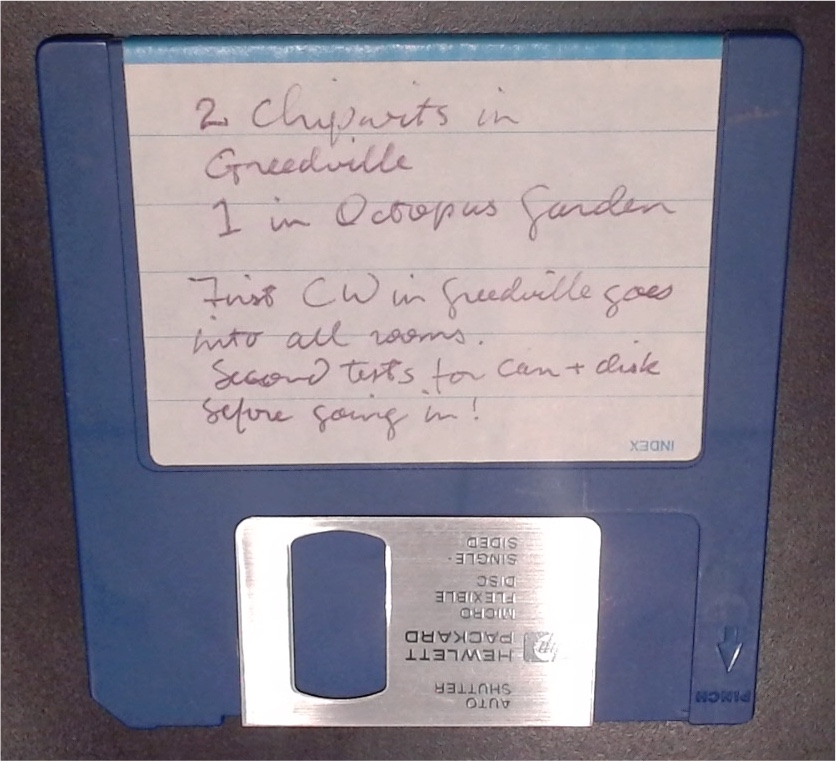 2 Chipwits in
Greedville
1 in Octopus Garden
First CW in Greedville goes
into all rooms.
Second tests for can + disk
before going in!
INDEX
SINGLE-
SIDED
MICRO
FLEXIBLE
DISC
HEWLETT
PACKARD
AUTO
SHUTTER
PINCH